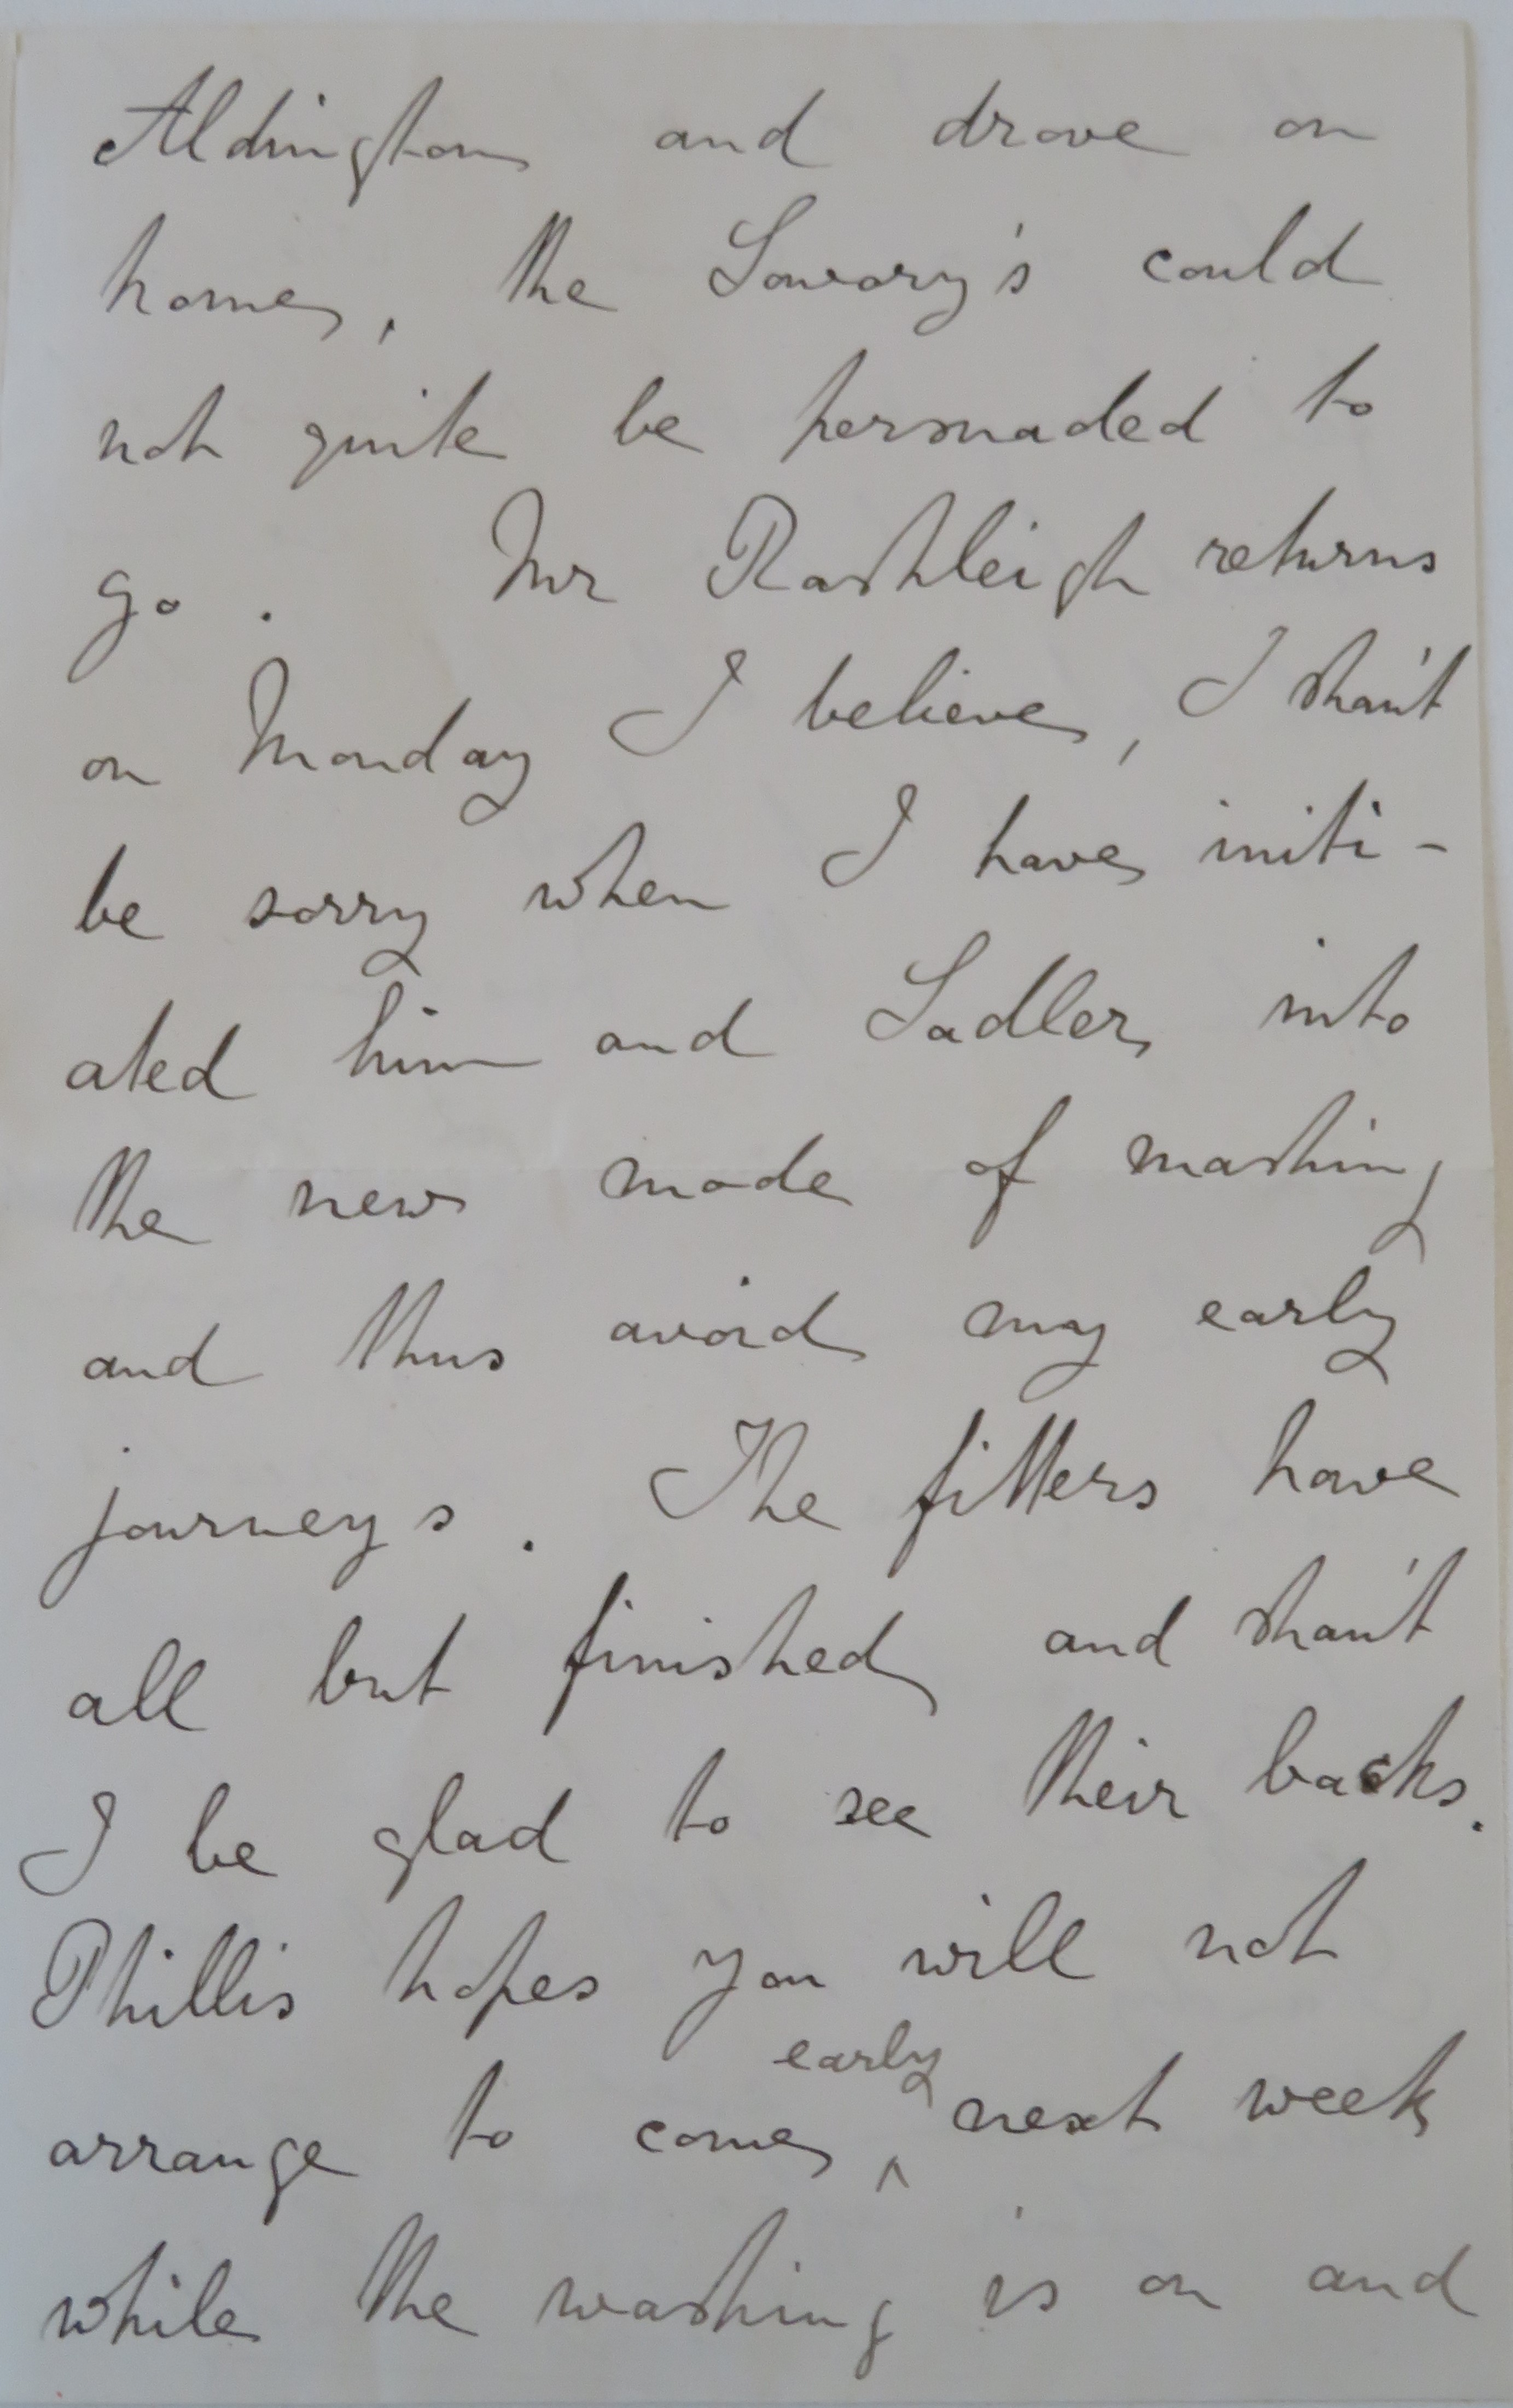 Aldington and drove on
home, the Lowory's could
not quite be persuaded to
go. Mr Rashleigh returns
on Monday I believe, I shan't
be sorry when I have initi-
ated him and Sadler into
the new mode of mashing
and thus avoid my early
journeys. The fitters have
all but finished and shan't
I be glad to see their backs.
Phillis hopes you will not
early
arrange to come ^ next week
while the washing is on and